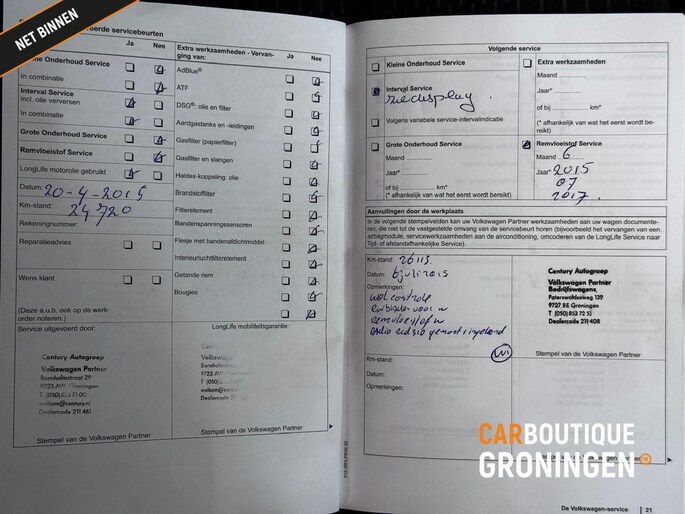 NET BINNEN
oerde servicebeurten
Ja
Nee
ine Onderhoud Service
In combinatie
Interval Service
incl. olie verversen
In combinatie
Grote Onderhoud Service
Remvloeistof Service
LongLife motorolie gebruikt
Datum: 20-4-2015
Km-stand: 24720
Rekeningnummer:
Reparatieadvies
Wens klant
(Deze a.u.b. ook op de werk-
order noteren.)
Service uitgevoerd door:
Century Autogroep
Volkswagen Partner
Bornholmstraat 29
9723 AW Groningen
welkom@century.nl
Dealercode 211461
Stempel van de Volkswagen Partner
Extra werkzaamheden - Vervan-
ging van:
Ja
Nee
AdBlue®
ATF
DSG®: olie en filter
Aardgastanks en -leidingen
Gasfilter (papierfilter)
Gasfilter en slangen
Haldex-koppeling: olie
Brandstoffilter
Filterelement
Bandenspanningssensoren
Flesje met bandenafdichtmiddel
Interieurluchtfilterelement
Getande riem
Bougies
LongLife mobiliteitsgarantie:
Century Autogroep
Volkswagen
Bornholmstr
9723 AW
T (050)
welkom@c
Dealercode
Stempel van de Volkswagen Partner
Volgende service
Kleine Onderhoud Service
Interval Service
zie display
Volgens variabele service-intervalindicatie
Grote Onderhoud Service
Maand
Jaar*
of bij km*
(* afhankelijk van wat het eerst wordt bereikt)
Extra werkzaamheden
Maand
Jaar*
of bij km*
(* afhankelijk van wat het eerst wordt be-
reikt)
Remvloeistof Service
Maand 6
Jaar* 2015
07
2017.
Aanvullingen door de werkplaats
In de volgende stempelvelden kan uw Volkswagen Partner werkzaamheden aan uw wagen documente-
ren, die niet tot de vastgestelde omvang van de servicebeurt horen (bijvoorbeeld het vervangen van een
airbagmodule, servicewerkzaamheden aan de airconditioning, omcoderen van de LongLife Service naar
Tijd- of afstandafhankelijke Service).
Km-stand: 26115.
Datum: 6 juli 2015
Opmerkingen:
controle
Century Autogroep
Volkswagen Partner
Bedrijfswagens,
Paterswoldseweg 139
9727 BE Groningen
T (050) 853 72 51
Dealercode 211408
Stempel van de Volkswagen Partner
Km-stand:
Datum:
Opmerkingen:
CARBOUTIQUE
GRONINGEN
Volkswagen Partner
De Volkswagen-service
21